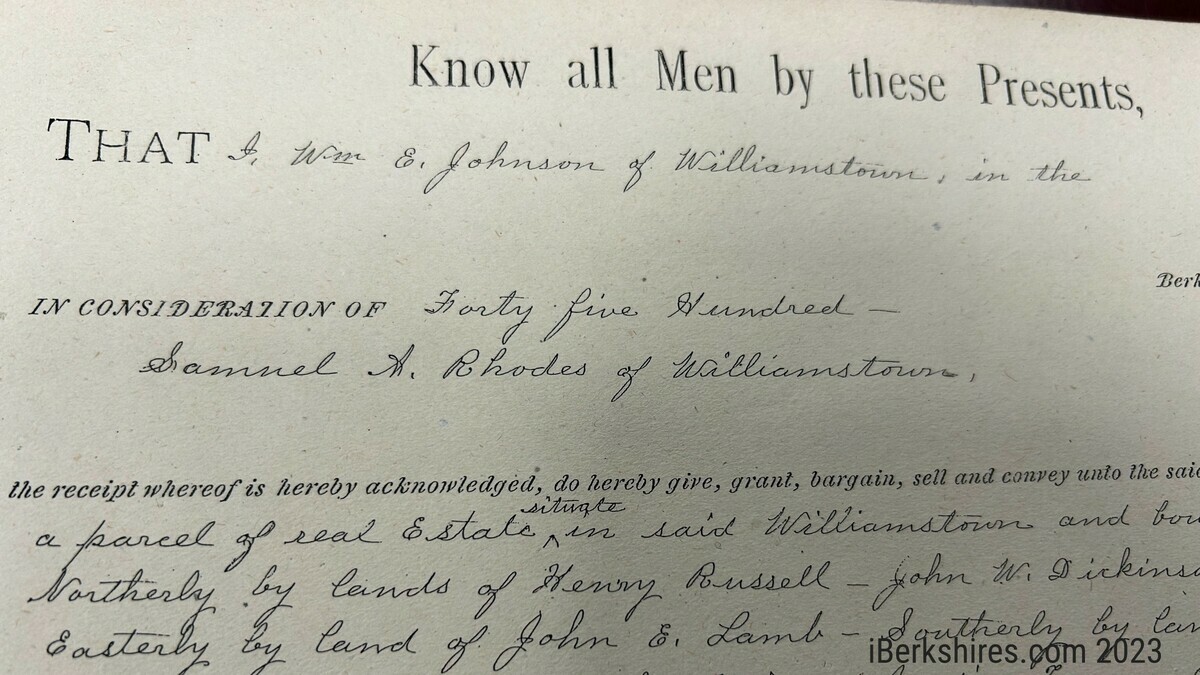 Know all Men by these Presents,
THAT I, Wm E. Johnson of Williamstown, in the
Berk
IN CONSIDERATION OF Forty five Hundred —
Samuel A. Rhodes of Williamstown,
the receipt whereof is hereby acknowledged, do hereby give, grant, bargain, sell and convey unto the said
situate
a parcel of real Estate ^ in said Williamstown and bou
Northerly by lands of Henry Russell — John W. Dickinso
Easterly by land of John E. Lamb — Southerly by lan
iBerkshires.com 2023